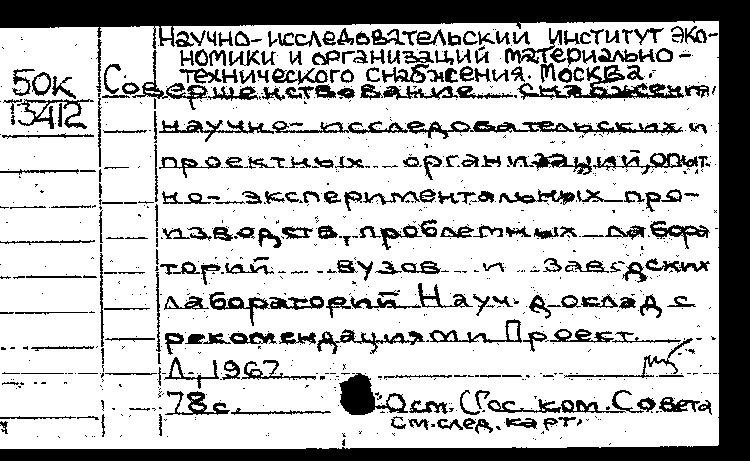 Научно-исследовательский институт эко-
номики и организаций материально-
технического снабжения. Москва.
50К Совершенствование снабжения
13412 научно-исследовательских и
проектных организаций, опыт
но-экспериментальных про-
изводств, проблемных лабора
торий вузов и заводских
лабораторий Науч. доклад с
рекомендациями Проект.
Л., 1967.
78с. Гос. ком. Совета
см. след. карт.